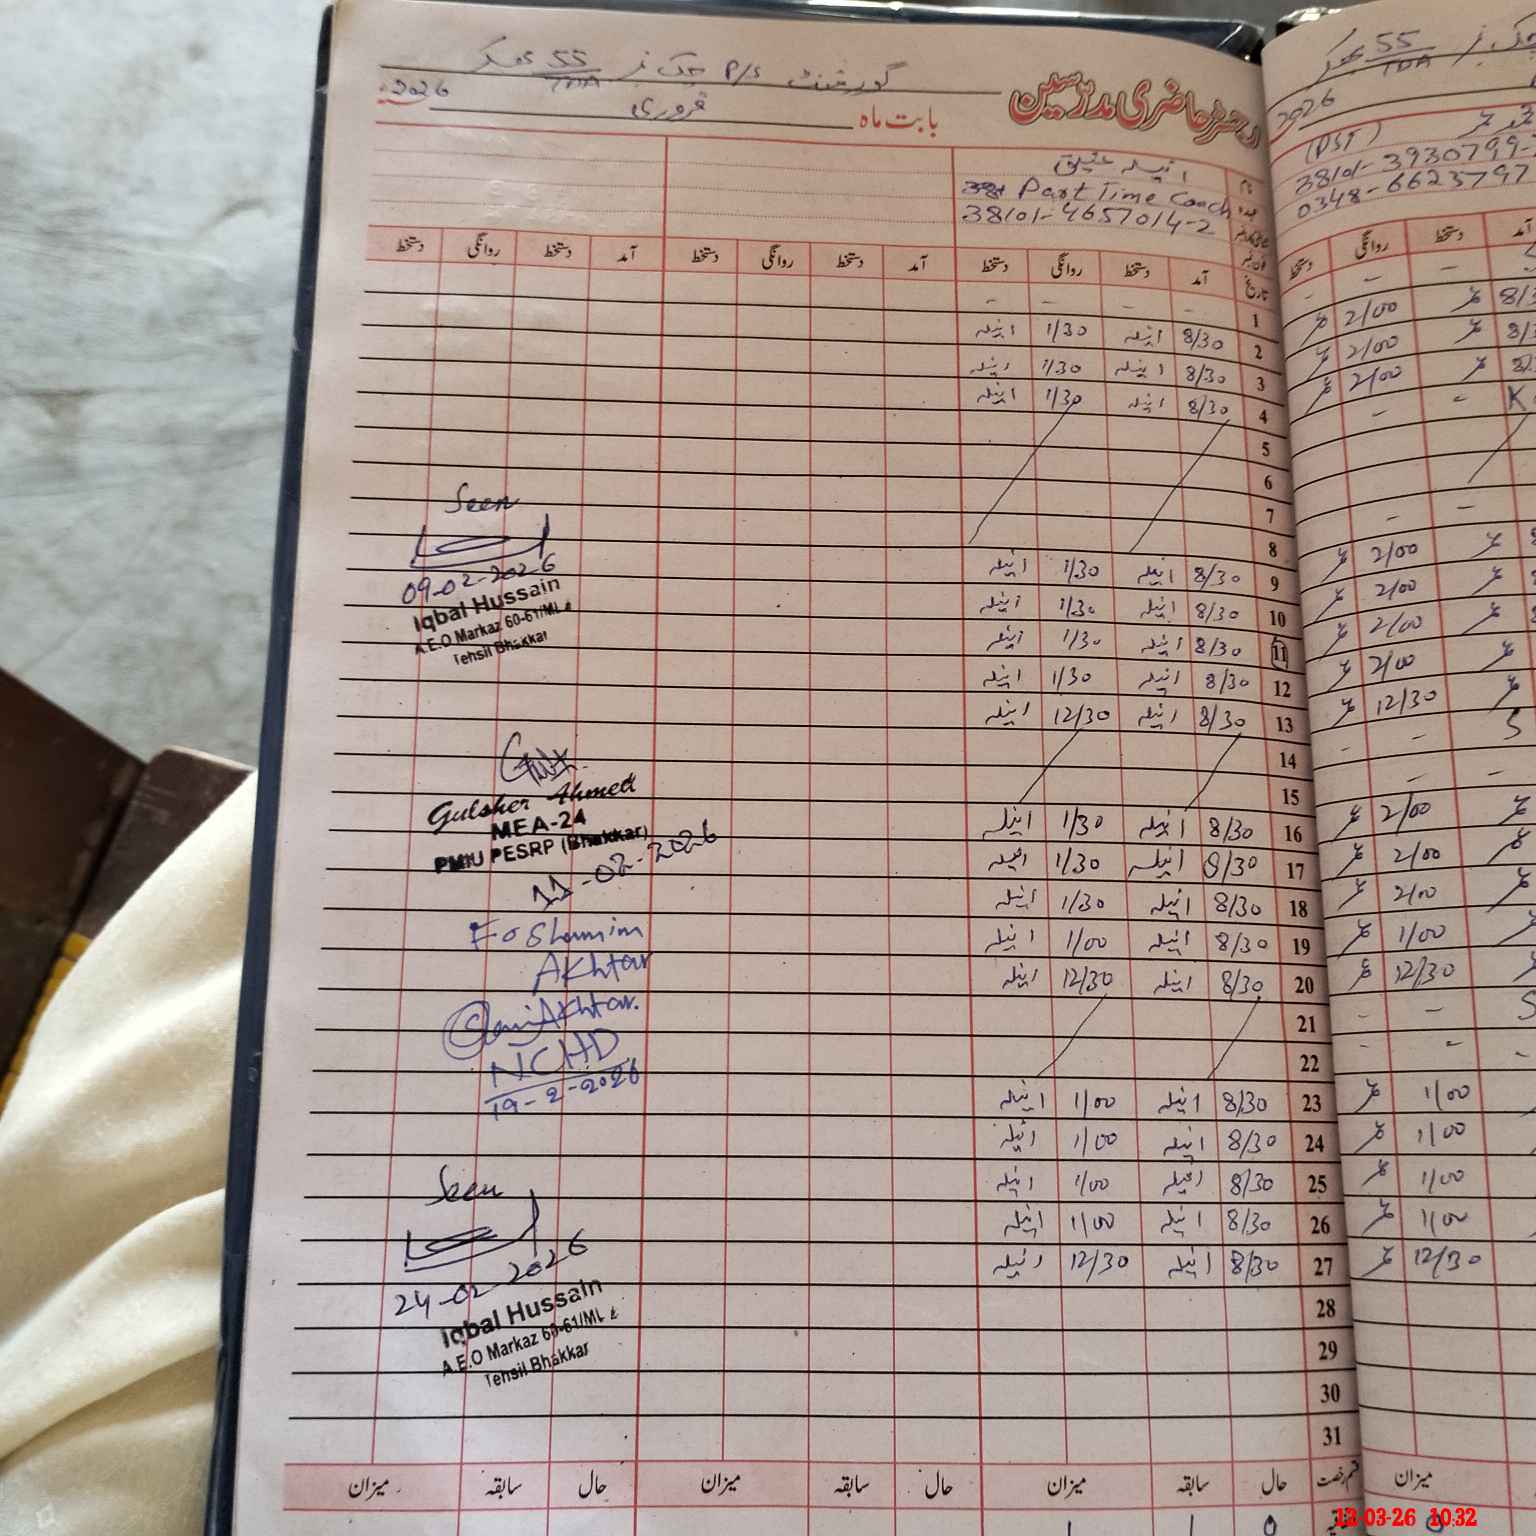 گورنمنٹ P/S چک نمبر 55/TDA بھکر
رجسٹر حاضری مدرسین
بابت ماہ فروری 2026
نام انیلہ عتیق
عہدہ Part Time Coach
38101-4657014-2
تاریخ آمد دستخط روانگی دستخط آمد دستخط روانگی دستخط
1 - - - -
2 8/30 انیلہ 1/30 انیلہ
3 8/30 انیلہ 1/30 انیلہ
4 8/30 انیلہ 1/30 انیلہ
5
6
7
8
9 8/30 انیلہ 1/30 انیلہ
10 8/30 انیلہ 1/30 انیلہ
11 8/30 انیلہ 1/30 انیلہ
12 8/30 انیلہ 1/30 انیلہ
13 8/30 انیلہ 12/30 انیلہ
14
15
16 8/30 انیلہ 1/30 انیلہ
17 8/30 انیلہ 1/30 انیلہ
18 8/30 انیلہ 1/30 انیلہ
19 8/30 انیلہ 1/00 انیلہ
20 8/30 انیلہ 12/30 انیلہ
21
22
23 8/30 انیلہ 1/00 انیلہ
24 8/30 انیلہ 1/00 انیلہ
25 8/30 انیلہ 1/00 انیلہ
26 8/30 انیلہ 1/00 انیلہ
27 8/30 انیلہ 12/30 انیلہ
28
29
30
31
قسم رخصت حال سابقہ میزان حال سابقہ میزان حال سابقہ میزان
0 1 1
Seen
09-02-2026
Iqbal Hussain
A.E.O Markaz 60-61/ML
Tehsil Bhakkar
Gulsher Ahmed
MEA-24
PMIU PESRP (Bhakkar)
11-02-2026
Fo Shamim
Akhtar
Akhtar.
NCHD
19-2-2026
Seen
24-02-2026
Iqbal Hussain
A.E.O Markaz 60-61/ML
Tehsil Bhakkar
55/TDA
2026
(PST)
38101-3930799-
0348-6623797
آمد دستخط روانگی دستخط
2/00
2/00
2/00
2/00
2/00
2/00
2/00
12/30
2/00
2/00
2/00
1/00
12/30
1/00
1/00
1/00
1/00
12/30
میزان
12-03-26 10:32